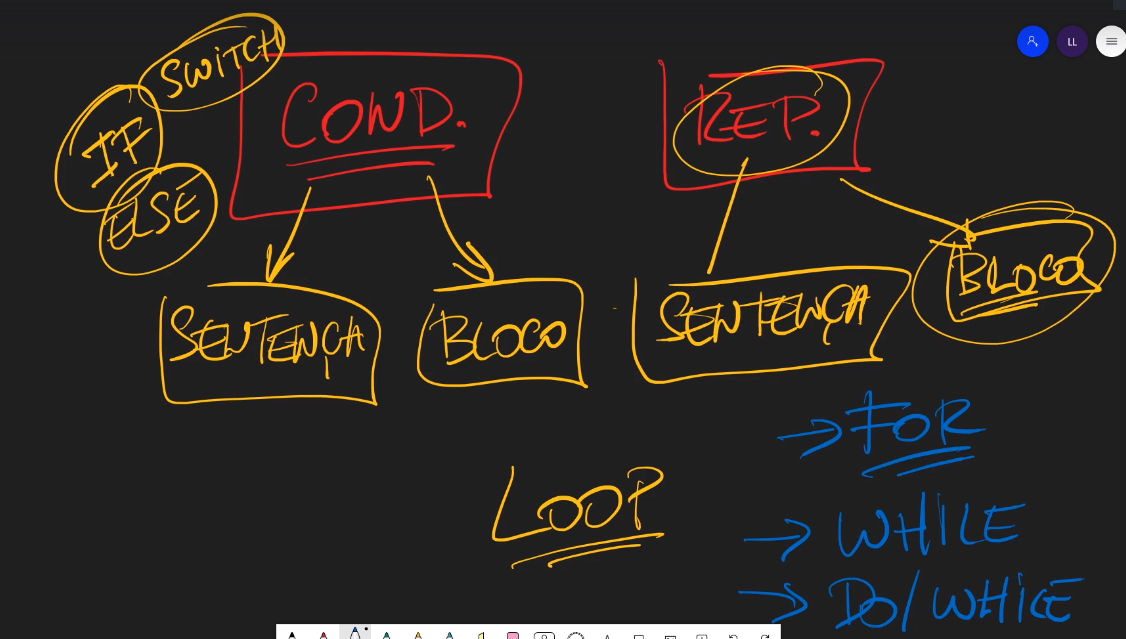 SWITCH
IF
ELSE
COND.
REP.
SENTENÇA
BLOCO
SENTENÇA
BLOCO
LOOP
→ FOR
→ WHILE
→ DO/WHILE
LL